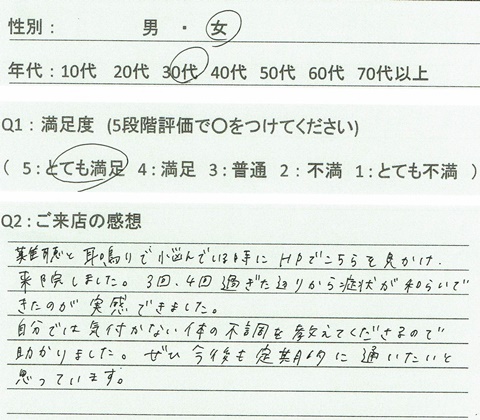 性別： 男 ・ 女
年代：10代 20代 30代 40代 50代 60代 70代以上
Q1：満足度 (5段階評価で〇をつけてください)
( 5：とても満足 4：満足 3：普通 2：不満 1：とても不満 )
Q2：ご来店の感想
難聴と耳鳴りで悩んでいる時にHPでこちらを見かけ、
来院しました。3回、4回過ぎた辺りから症状が和らいで
きたのが実感できました。
自分では気付かない体の不調を教えてくださるので
助かりました。ぜひ今後も定期的に通いたいと
思っています。